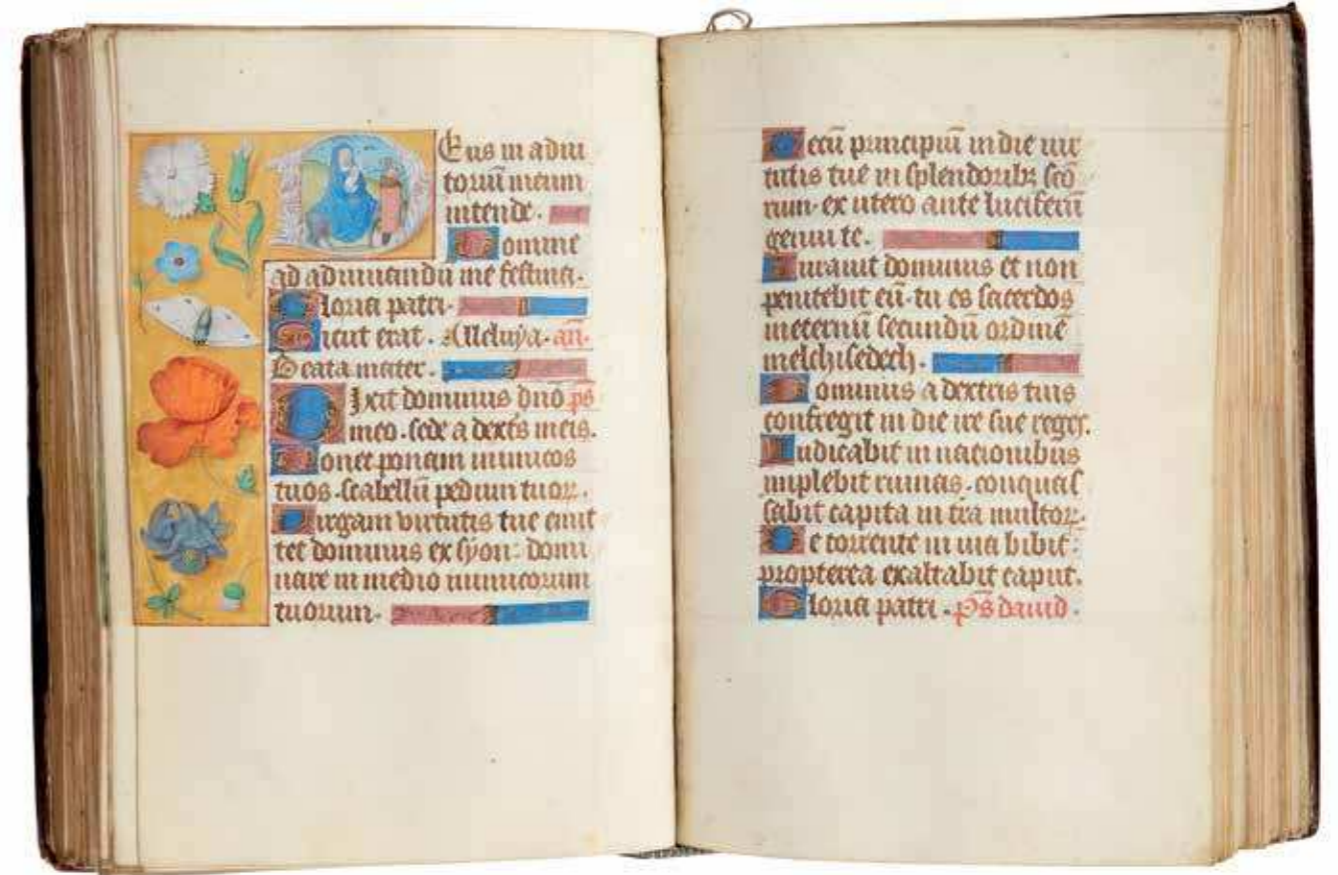 Eus in adiu
toriū meum
intende.
Domine
ad adiuuandū me festina.
Gloria patri.
Sicut erat. Alleluya. an̄.
Beata mater.
Dixit dominus dnō ps̄
meo. sede a dext̄s meis.
Donec ponam inimicos
tuos. scabellū pedum tuoꝝ.
Virgam virtutis tue emit
tet dominus ex syon: domi
nare in medio inimicorum
tuorum.
Tecū principiū in die uir
tutis tue in splendoribꝫ sc̄o
rum. ex utero ante luciferū
genui te.
Iurauit dominus et non
penitebit eū. tu es sacerdos
ineternū secundū ordinē
melchisedech.
Dominus a dextris tuis
confregit in die ire sue reges.
Iudicabit in nationibus
implebit ruinas. conquas
sabit capita in t̄ra multoꝝ.
De torrente in uia bibit:
propterea exaltabit caput.
Gloria patri. Ps̄ dauid.